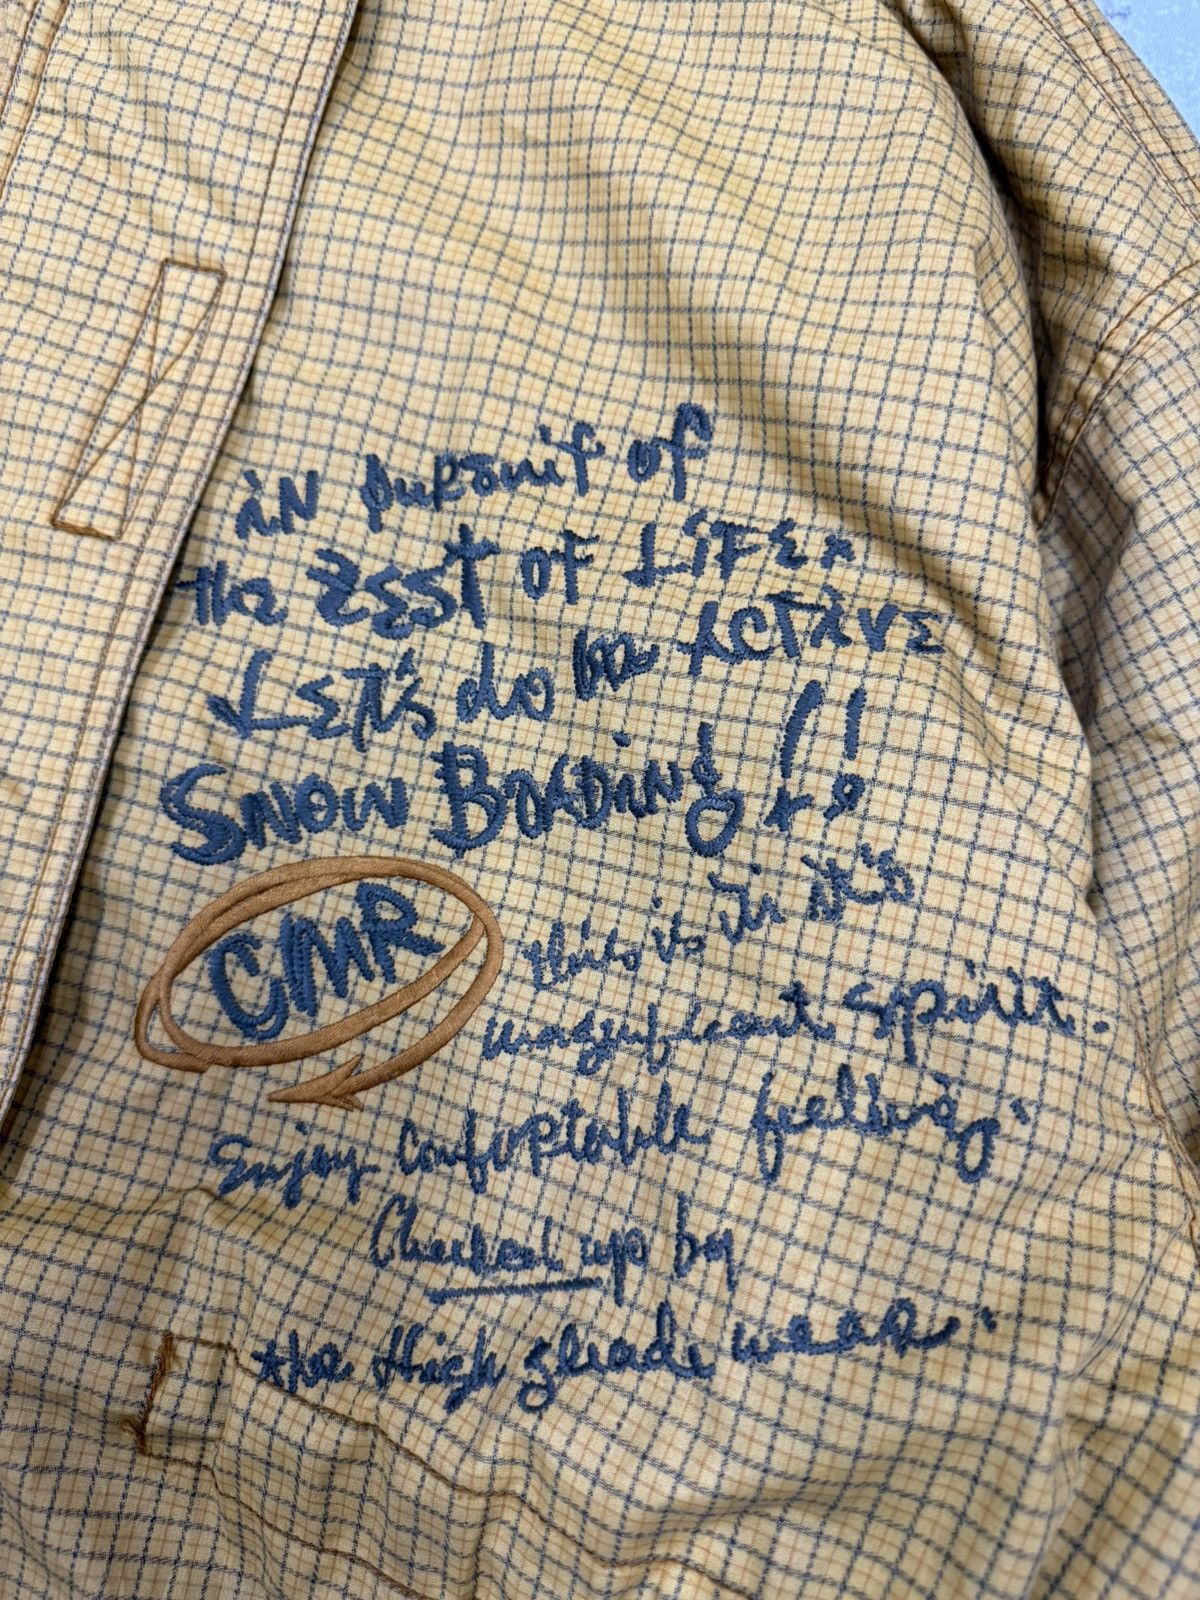 in pursuit of
the BEST OF LiFE.
LET's do be ACTiVE
SNOW BOADiNg!!
CMR
this is in it's
magnificant spirit.
Enjoy comfortable feeling
Checked up by
the High glade wear.